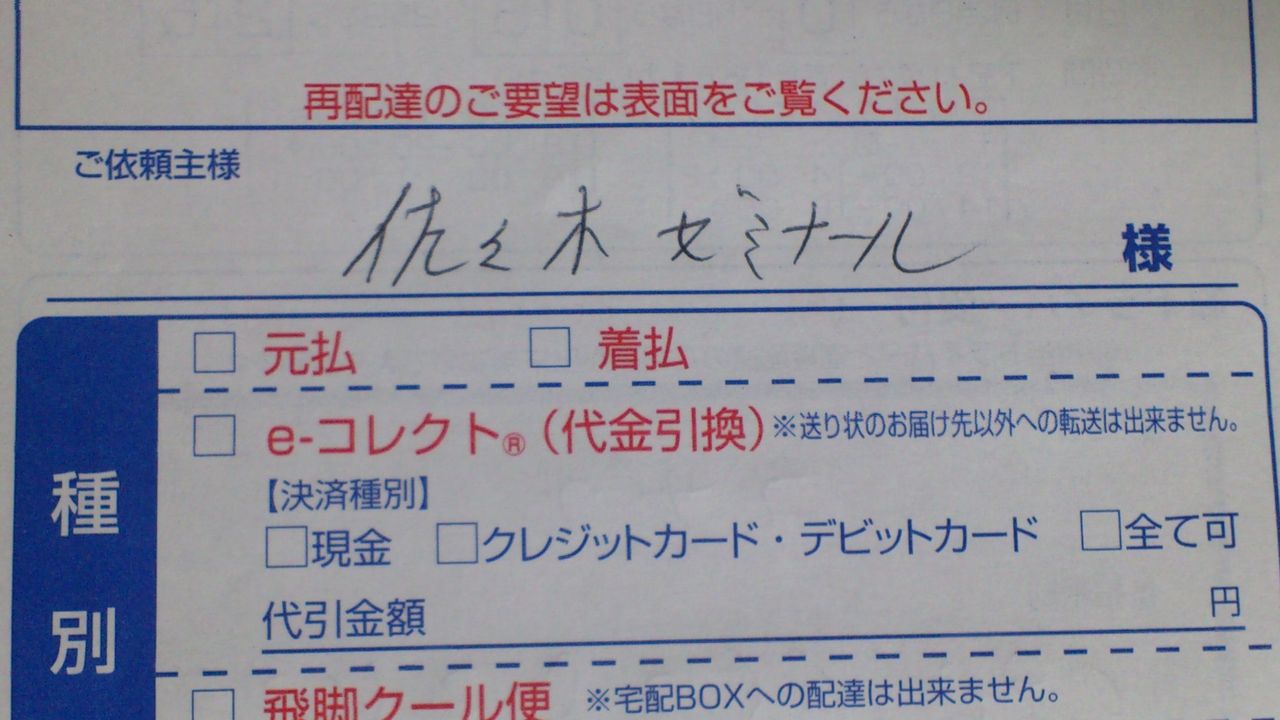 再配達のご要望は表面をご覧ください。
ご依頼主様
佐々木ゼミナール 様
種別
□ 元払 □ 着払
□ e-コレクト®（代金引換）※送り状のお届け先以外への転送は出来ません。
【決済種別】
□現金 □クレジットカード・デビットカード □全て可
代引金額 円
□ 飛脚クール便 ※宅配BOXへの配達は出来ません。